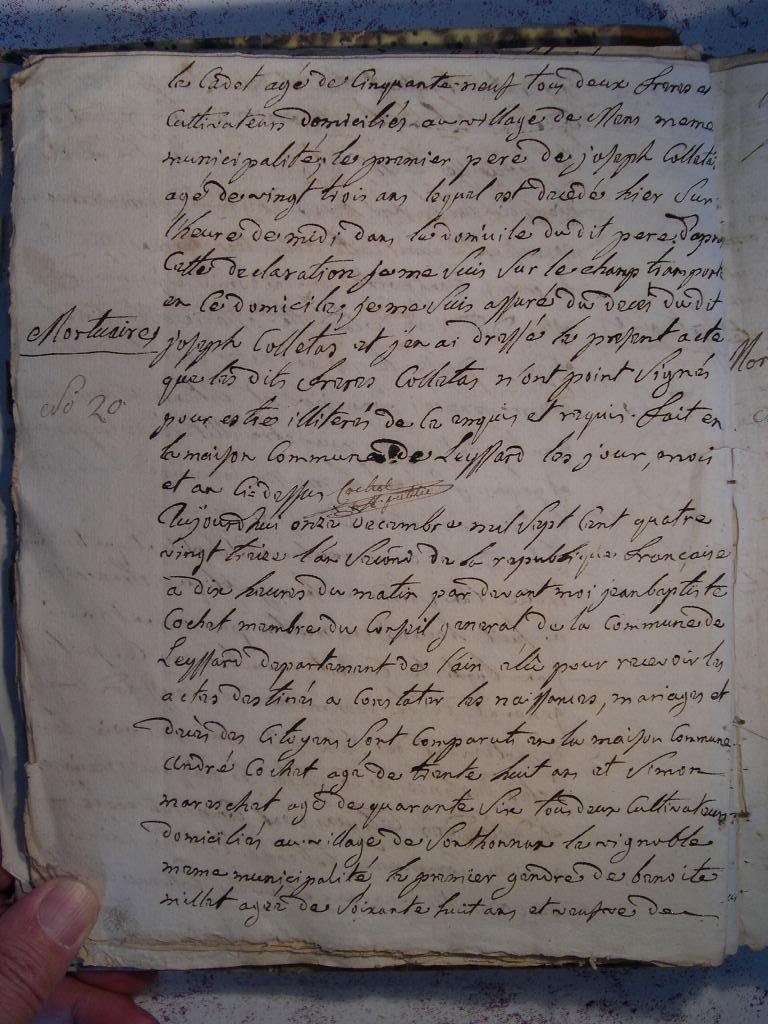 le Cadet agé de Cinquante-neuf tous deux freres et
Cultivateurs domiciliés au village de Mens meme
municipalité; le premier pere de joseph Colletas
agé de vingt trois ans lequel est decedé hier sur
l'heure de midi dans le domicile du dit pere. D'apres
Cette declaration je me suis sur le champ transporté
en Ce domicile; je me suis assuré du décès du dit
Mortuaires
joseph Colletas et j'en ai dressé le present acte
que les dits freres Colletas n'ont point signés
No 20
pour estre illiterés de Ce enquis et requis. fait en
la maison Commune de Leyssard les jour, mois
et an Ci-dessus Cochet
Aujourd'hui onze decembre mil sept Cent quatre
vingt treize l'an second de la republique française
a dix heures du matin par devant moi jean baptiste
Cochet membre du Conseil general de la Commune de
Leyssard departement de l'ain elû pour recevoir les
actes destinés a Constater les naissances, mariages et
decès des Citoyens sont Comparuts en la maison Commune
andré Cochet agé de trente huit ans et Simon
mareschat agé de quarante six tous deux Cultivateurs
domiciliés au village de Sonthonnax le vignoble
meme municipalité le premier gendre de benoite
millet agée de soixante huit ans et veufve de
Mor